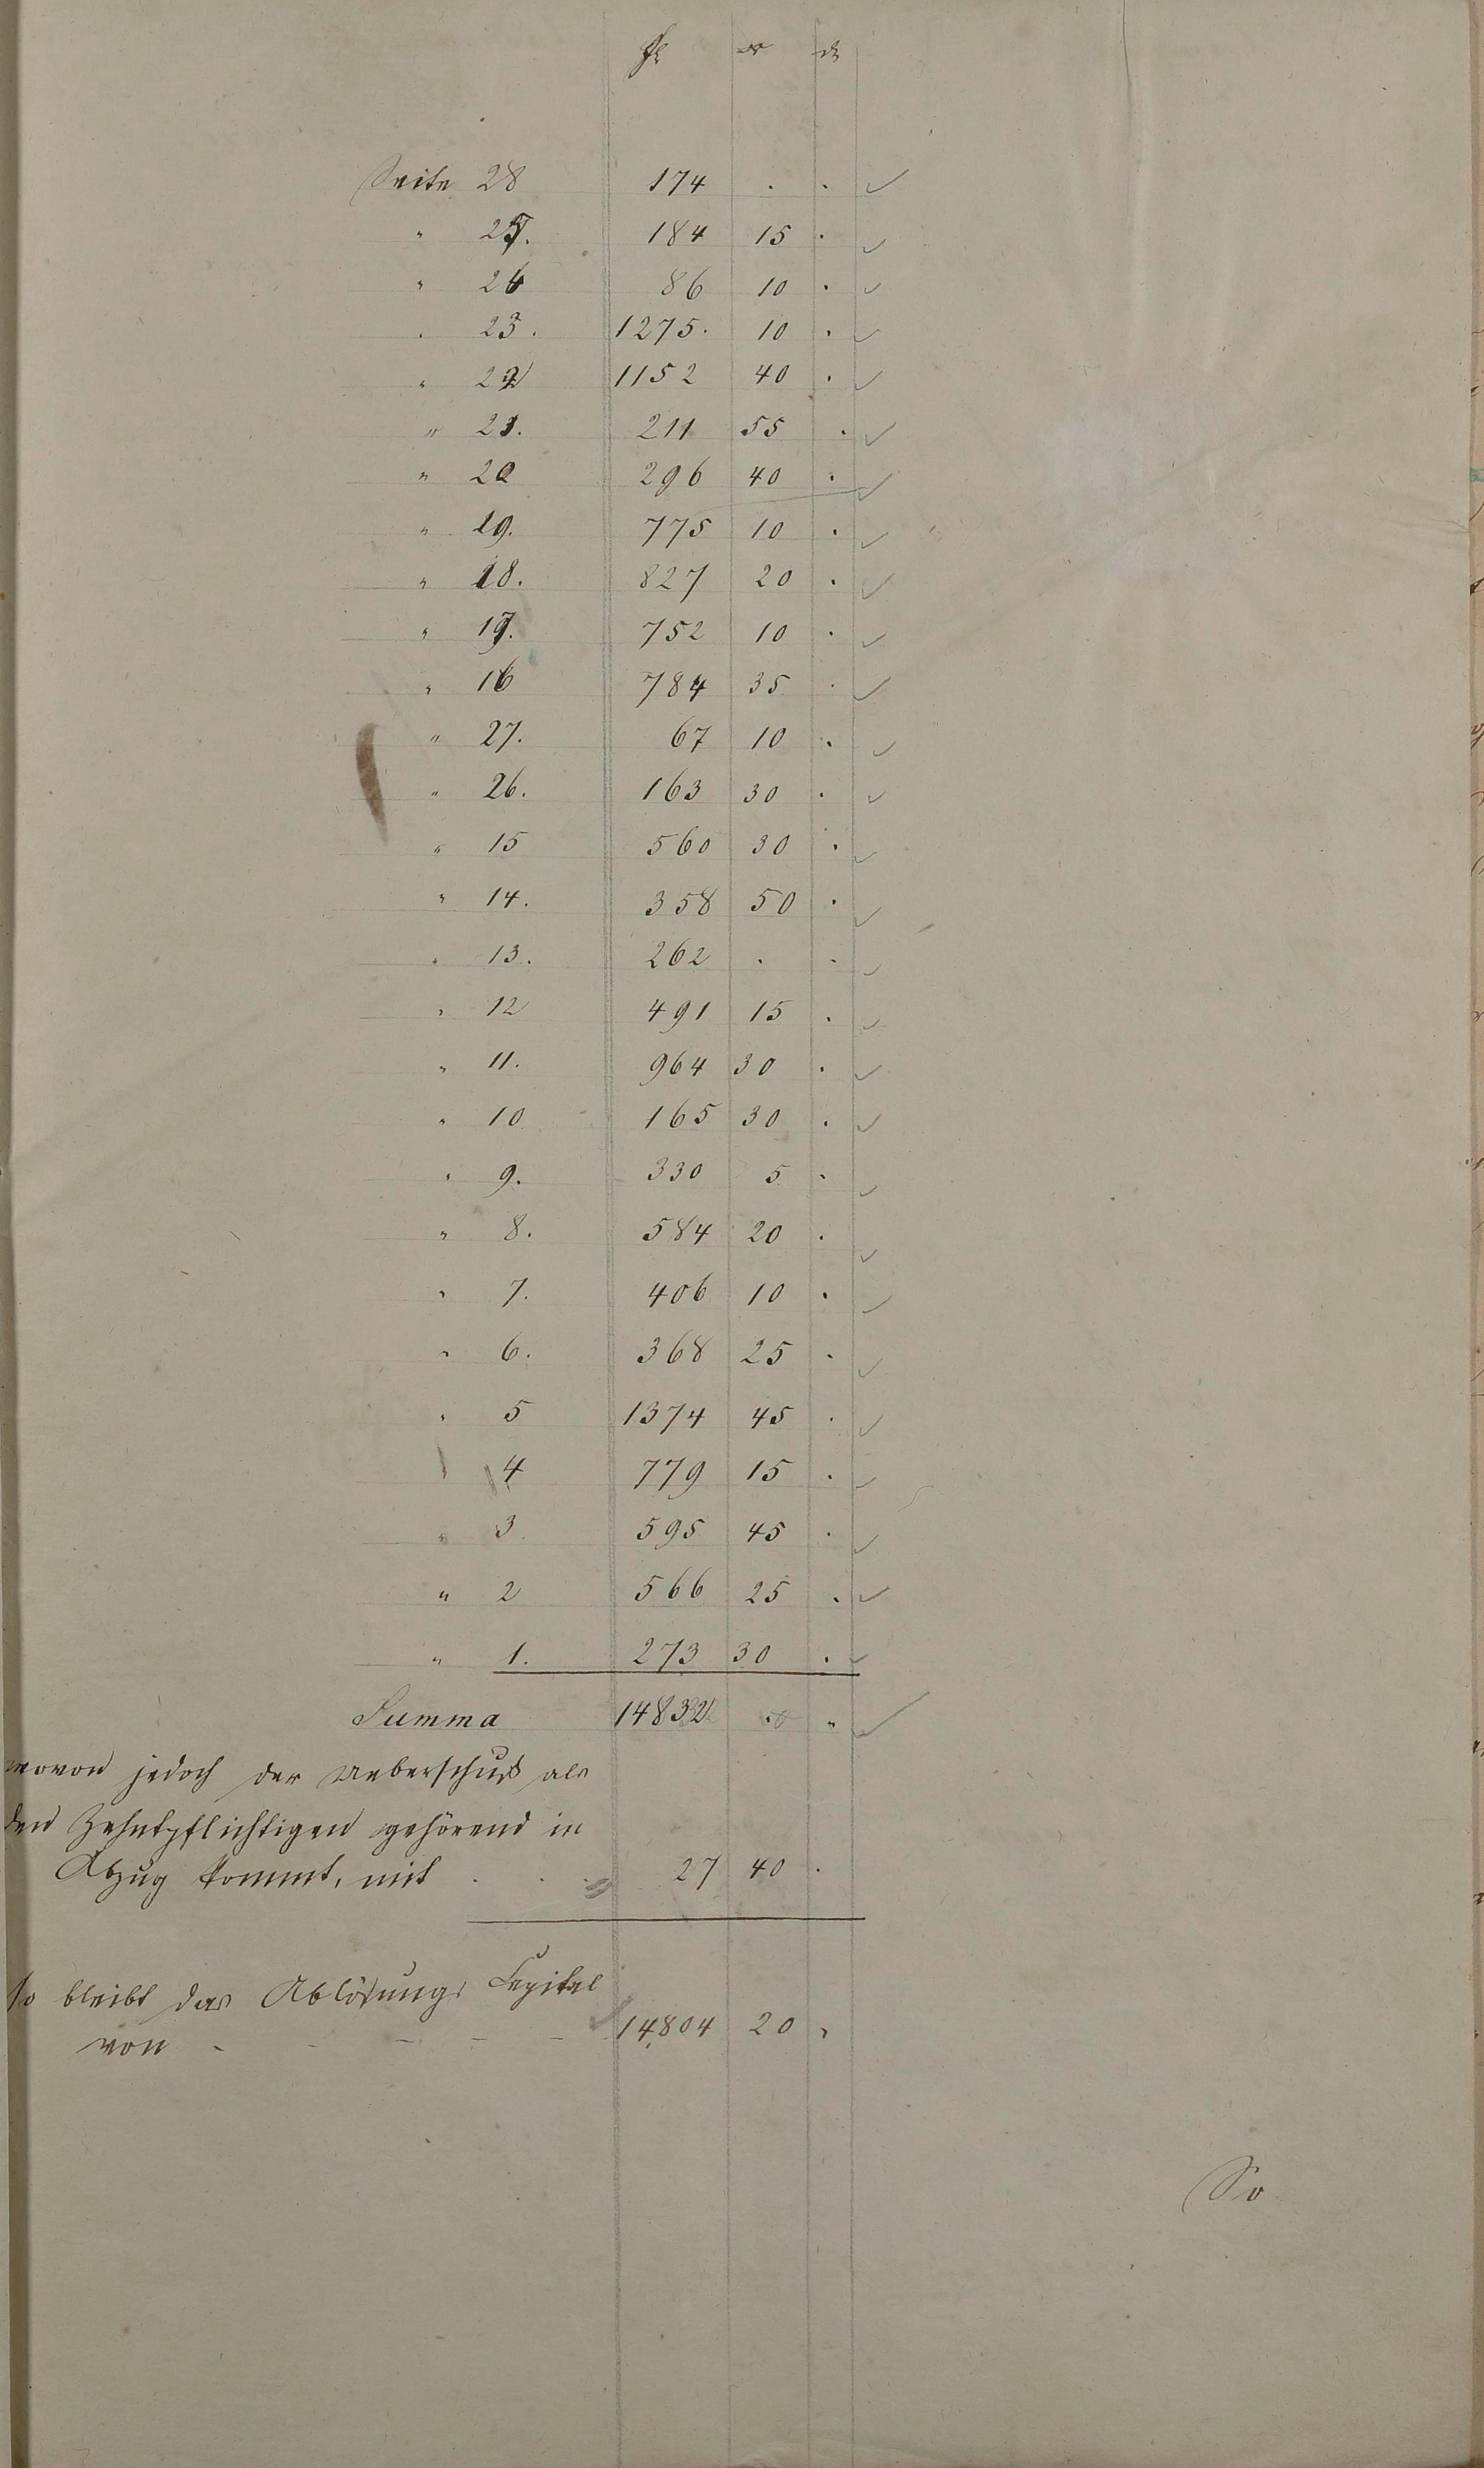 fl xr d
Seite 28 174 . . ✓
" 25. 184 15 . ✓
" 24 86 10 . ✓
" 23. 1275. 10 . ✓
" 22 1152 40 . ✓
" 21. 211 55 . ✓
" 20 296 40 . ✓
" 19. 775 10 . ✓
" 18. 827 20 . ✓
" 17. 752 10 . ✓
" 16 784 35 . ✓
" 27. 67 10 . ✓
" 26. 163 30 . ✓
" 15 560 30 . ✓
" 14. 358 50 . ✓
" 13. 262 . . ✓
" 12 491 15 . ✓
" 11. 964 30 . ✓
" 10 165 30 . ✓
" 9. 330 5 . ✓
" 8. 584 20 . ✓
" 7. 406 10 . ✓
" 6. 368 25 . ✓
" 5 1374 45 . ✓
" 4 779 15 . ✓
" 3 595 45 . ✓
" 2 566 25 . ✓
" 1. 273 30 . ✓
Summa 14832 " ✓
wovon jedoch der Ueberschuß als
den Zehntpflichtigen gehörend in
Abzug kommt, mit . . . 27 40 .
so bleibt das Ablösungs Capital
von - - - - 14804 20 .
So